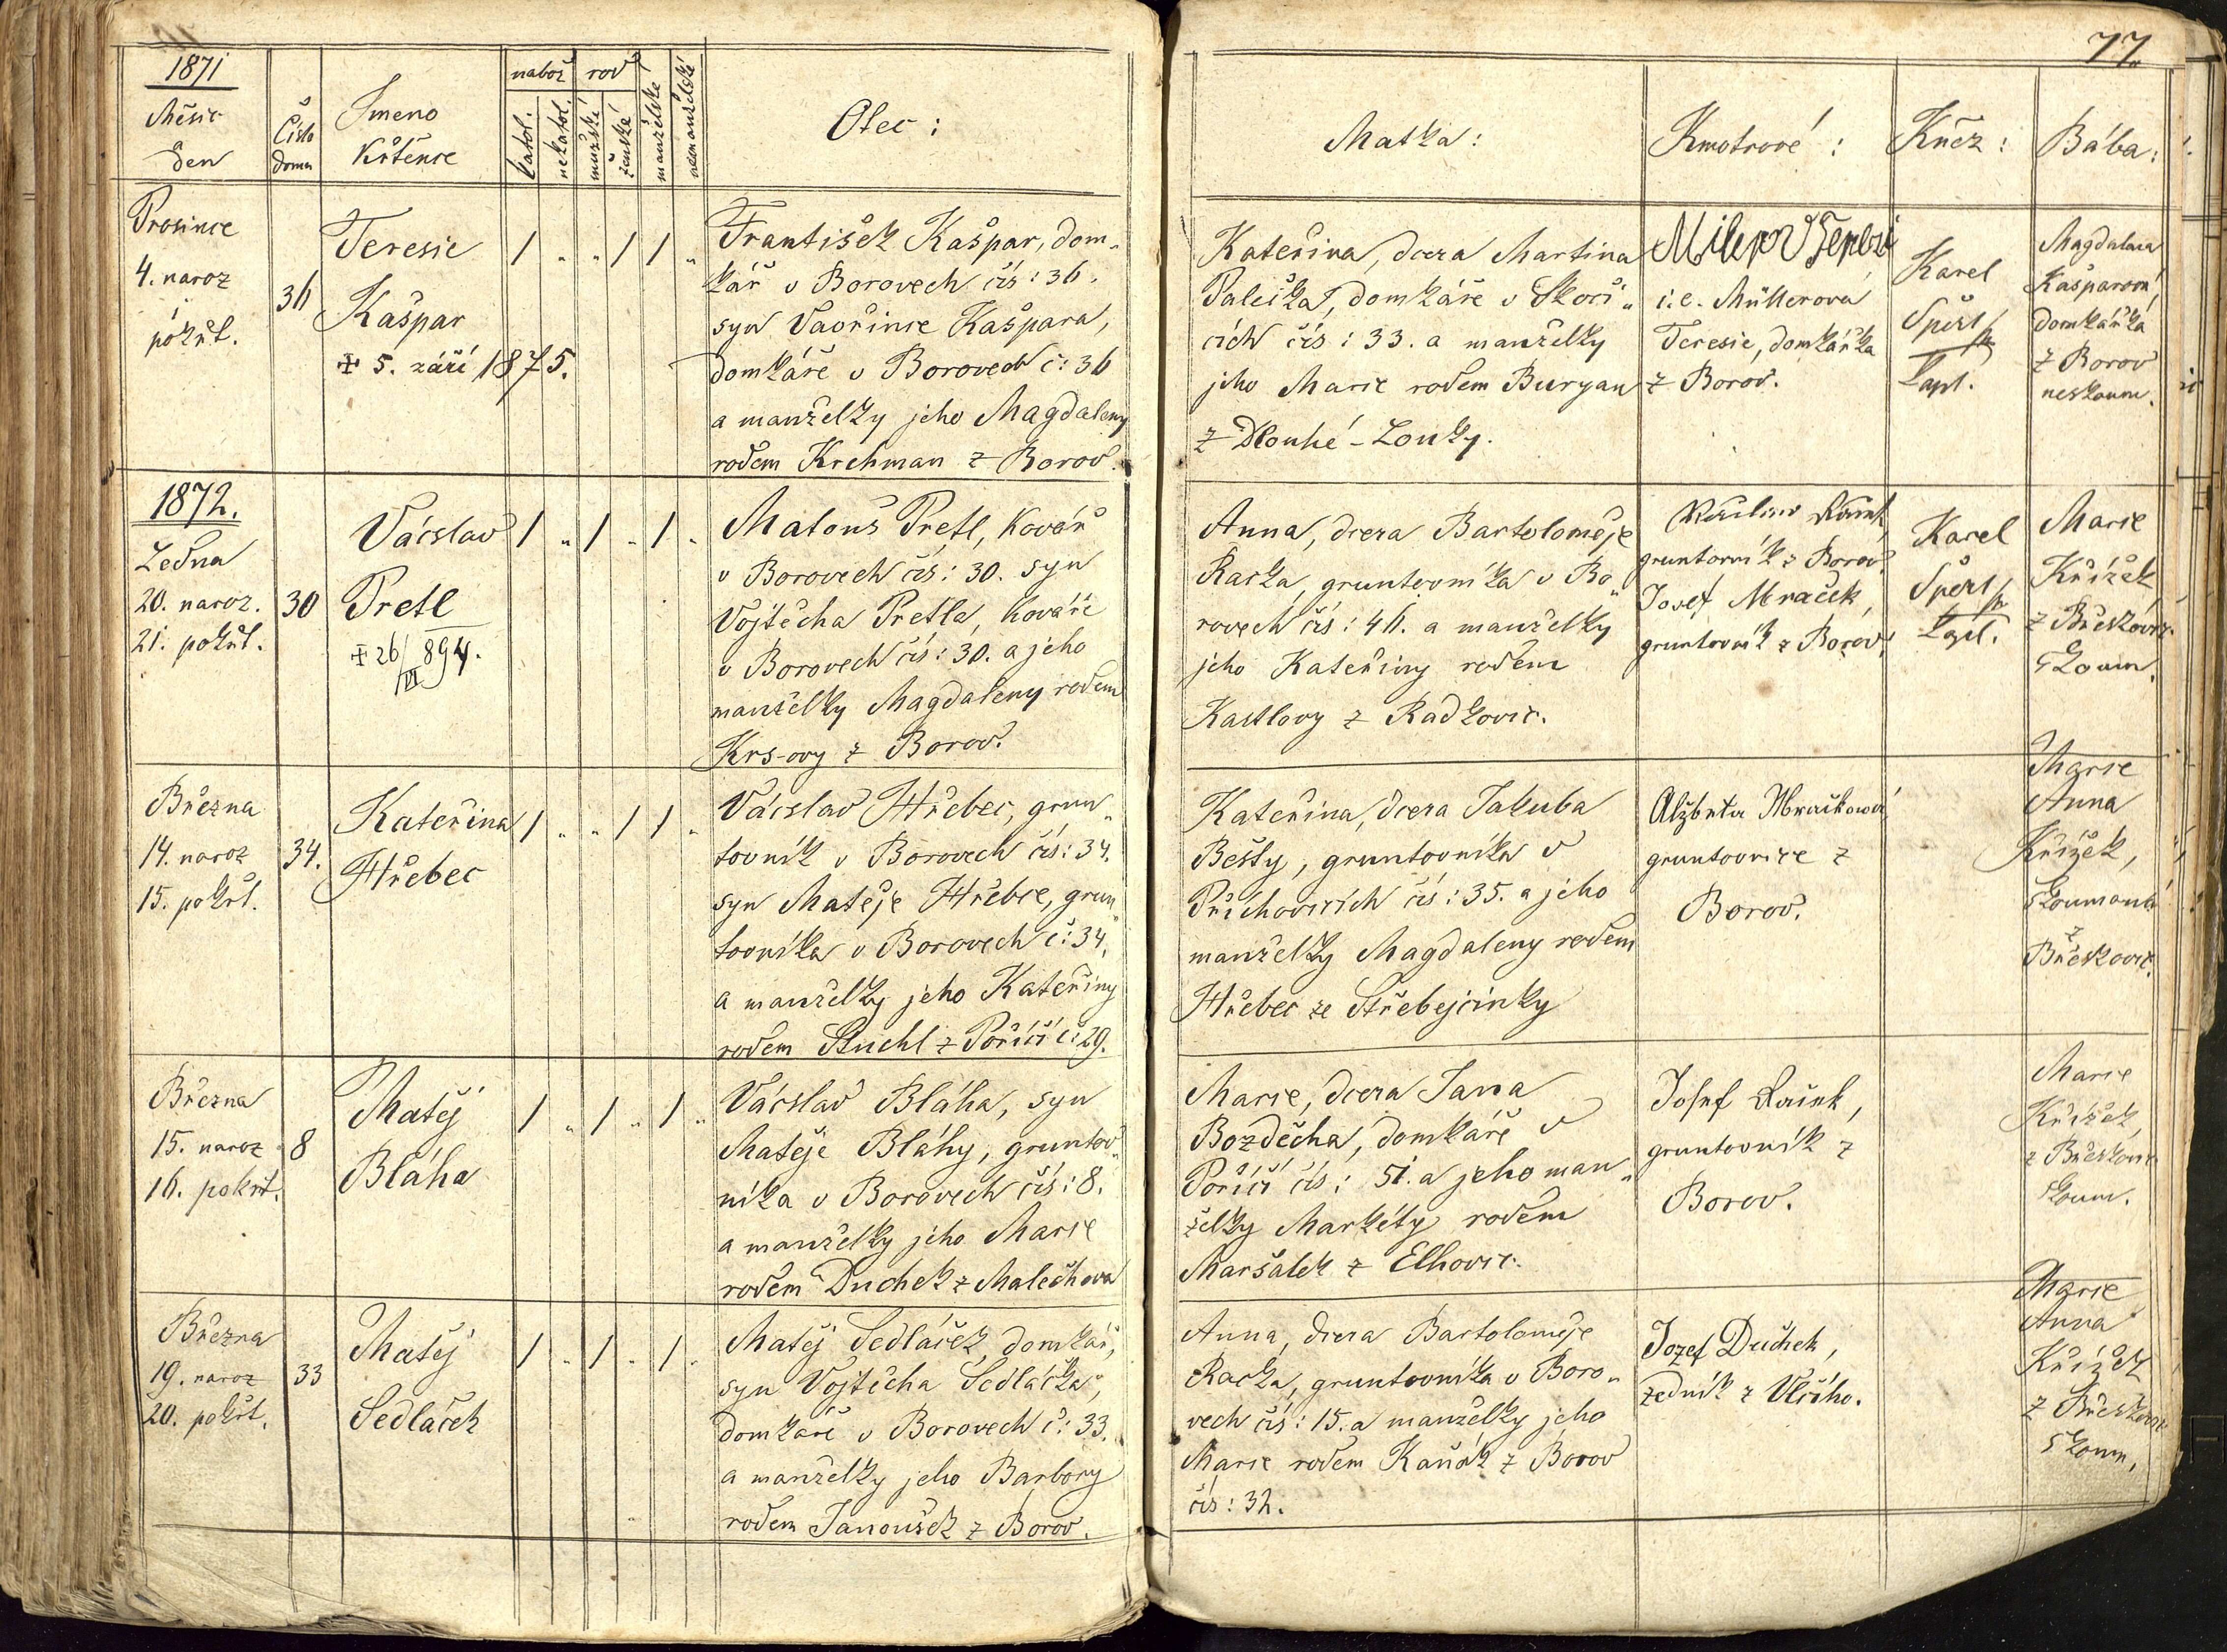 77.
1871
Měsíc
den
Číslo
domu
Jmeno
Křtěnce
nábož
rod
katol.
nekatol.
mužské
ženské
manželské
nemanželské
Otec:
Matka:
Kmotrové:
Kněz:
Bába:
Prosince
4. naroz
i
pokřt.
36
Teresie
Kašpar
+ 5. září 1875.
/ „ „ / / „
František Kašpar, dom„
kář v Borovech čís: 36.
syn Vavřince Kašpara,
domkáře v Borovech č: 36
a manželky jeho Magdaleny
rodem Krehman z Borov.
Kateřina, dcera Martina
Palečka, domkáře v Skoči„
cích čís: 33. a manželky
jeho Marie rodem Buryan
z Dlouhé-Louky.
i.e. Müllerová
Teresie, domkářka
z Borov.
Karel
Šperl
kapl.
Magdalena
Kašparová,
domkářka
z Borov
neskoum.
1872.
Ledna
20. naroz.
21. pokřt.
30
Václav
Pretl
+ 26/VI 894.
/ „ / „ / „
Matouš Pretl, Kovář
v Borovech čís: 30. syn
Vojtěcha Pretla, Kováře
v Borovech čís: 30. a jeho
manželky Magdaleny rodem
Krs-ovy z Borov.
Anna, dcera Bartoloměje
Racka, gruntovníka v Bo„
rovech čís: 46. a manželky
jeho Kateřiny rodem
Kastlovy z Radkovic.
gruntovník z Borov.
Josef Mraček,
gruntovník z Borov.
Karel
Šperl
kapl.
Marie
Křížek
z Břeskovic
skoum.
Března
14. naroz
15. pokřt.
34.
Kateřina
Hřebec
/ „ „ / / „
Václav Hřebec, grun„
tovník v Borovech čís: 34.
syn Matěje Hřebce, grun„
tovníka v Borovech č: 34.
a manželky jeho Kateřiny
rodem Stuchl z Poříčí č: 29.
Kateřina, dcera Jakuba
Bešty, gruntovníka v
Příchovicích čís: 35. a jeho
manželky Magdaleny rodem
Hřebec ze Střebejcinky
Alžběta Mračková
gruntovnice z
Borov.
Marie
Anna
Křížek,
skoumaná
z
Břeskovic.
Března
15. naroz
16. pokřt.
8
Matěj
Bláha
/ „ / „ / „
Václav Bláha, syn
Matěje Bláhy, gruntov„
níka v Borovech čís: 8.
a manželky jeho Marie
rodem Duchek z Malechova
Marie, dcera Jana
Bozděcha, domkáře v
Poříčí čís: 51. a jeho man„
želky Markéty rodem
Maršálek z Elhovic.
Josef Raček,
gruntovník z
Borov.
Marie
Křížek,
z Břeskovic
skoum.
Března
19. naroz
20. pokřt.
33
Matěj
Sedláček
/ „ / „ / „
Matěj Sedláček, domkář,
syn Vojtěcha Sedláčka,
domkáře v Borovech č: 33.
a manželky jeho Barbory
rodem Janoušek z Borov.
Anna, dcera Bartoloměje
Racka, gruntovníka v Boro„
vech čís: 15. a manželky jeho
Marie rodem Kaňák z Borov
čís: 32.
Jozef Duchek,
zedník z Vlčího.
Marie
Anna
Křížek
z Břeskovic
skoum.